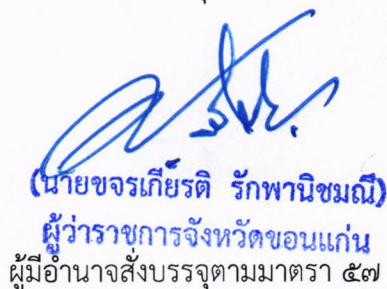 (นายขจรเกียรติ รักพานิชมณี)
ผู้ว่าราชการจังหวัดขอนแก่น
ผู้มีอำนาจสั่งบรรจุตามมาตรา ๕๗